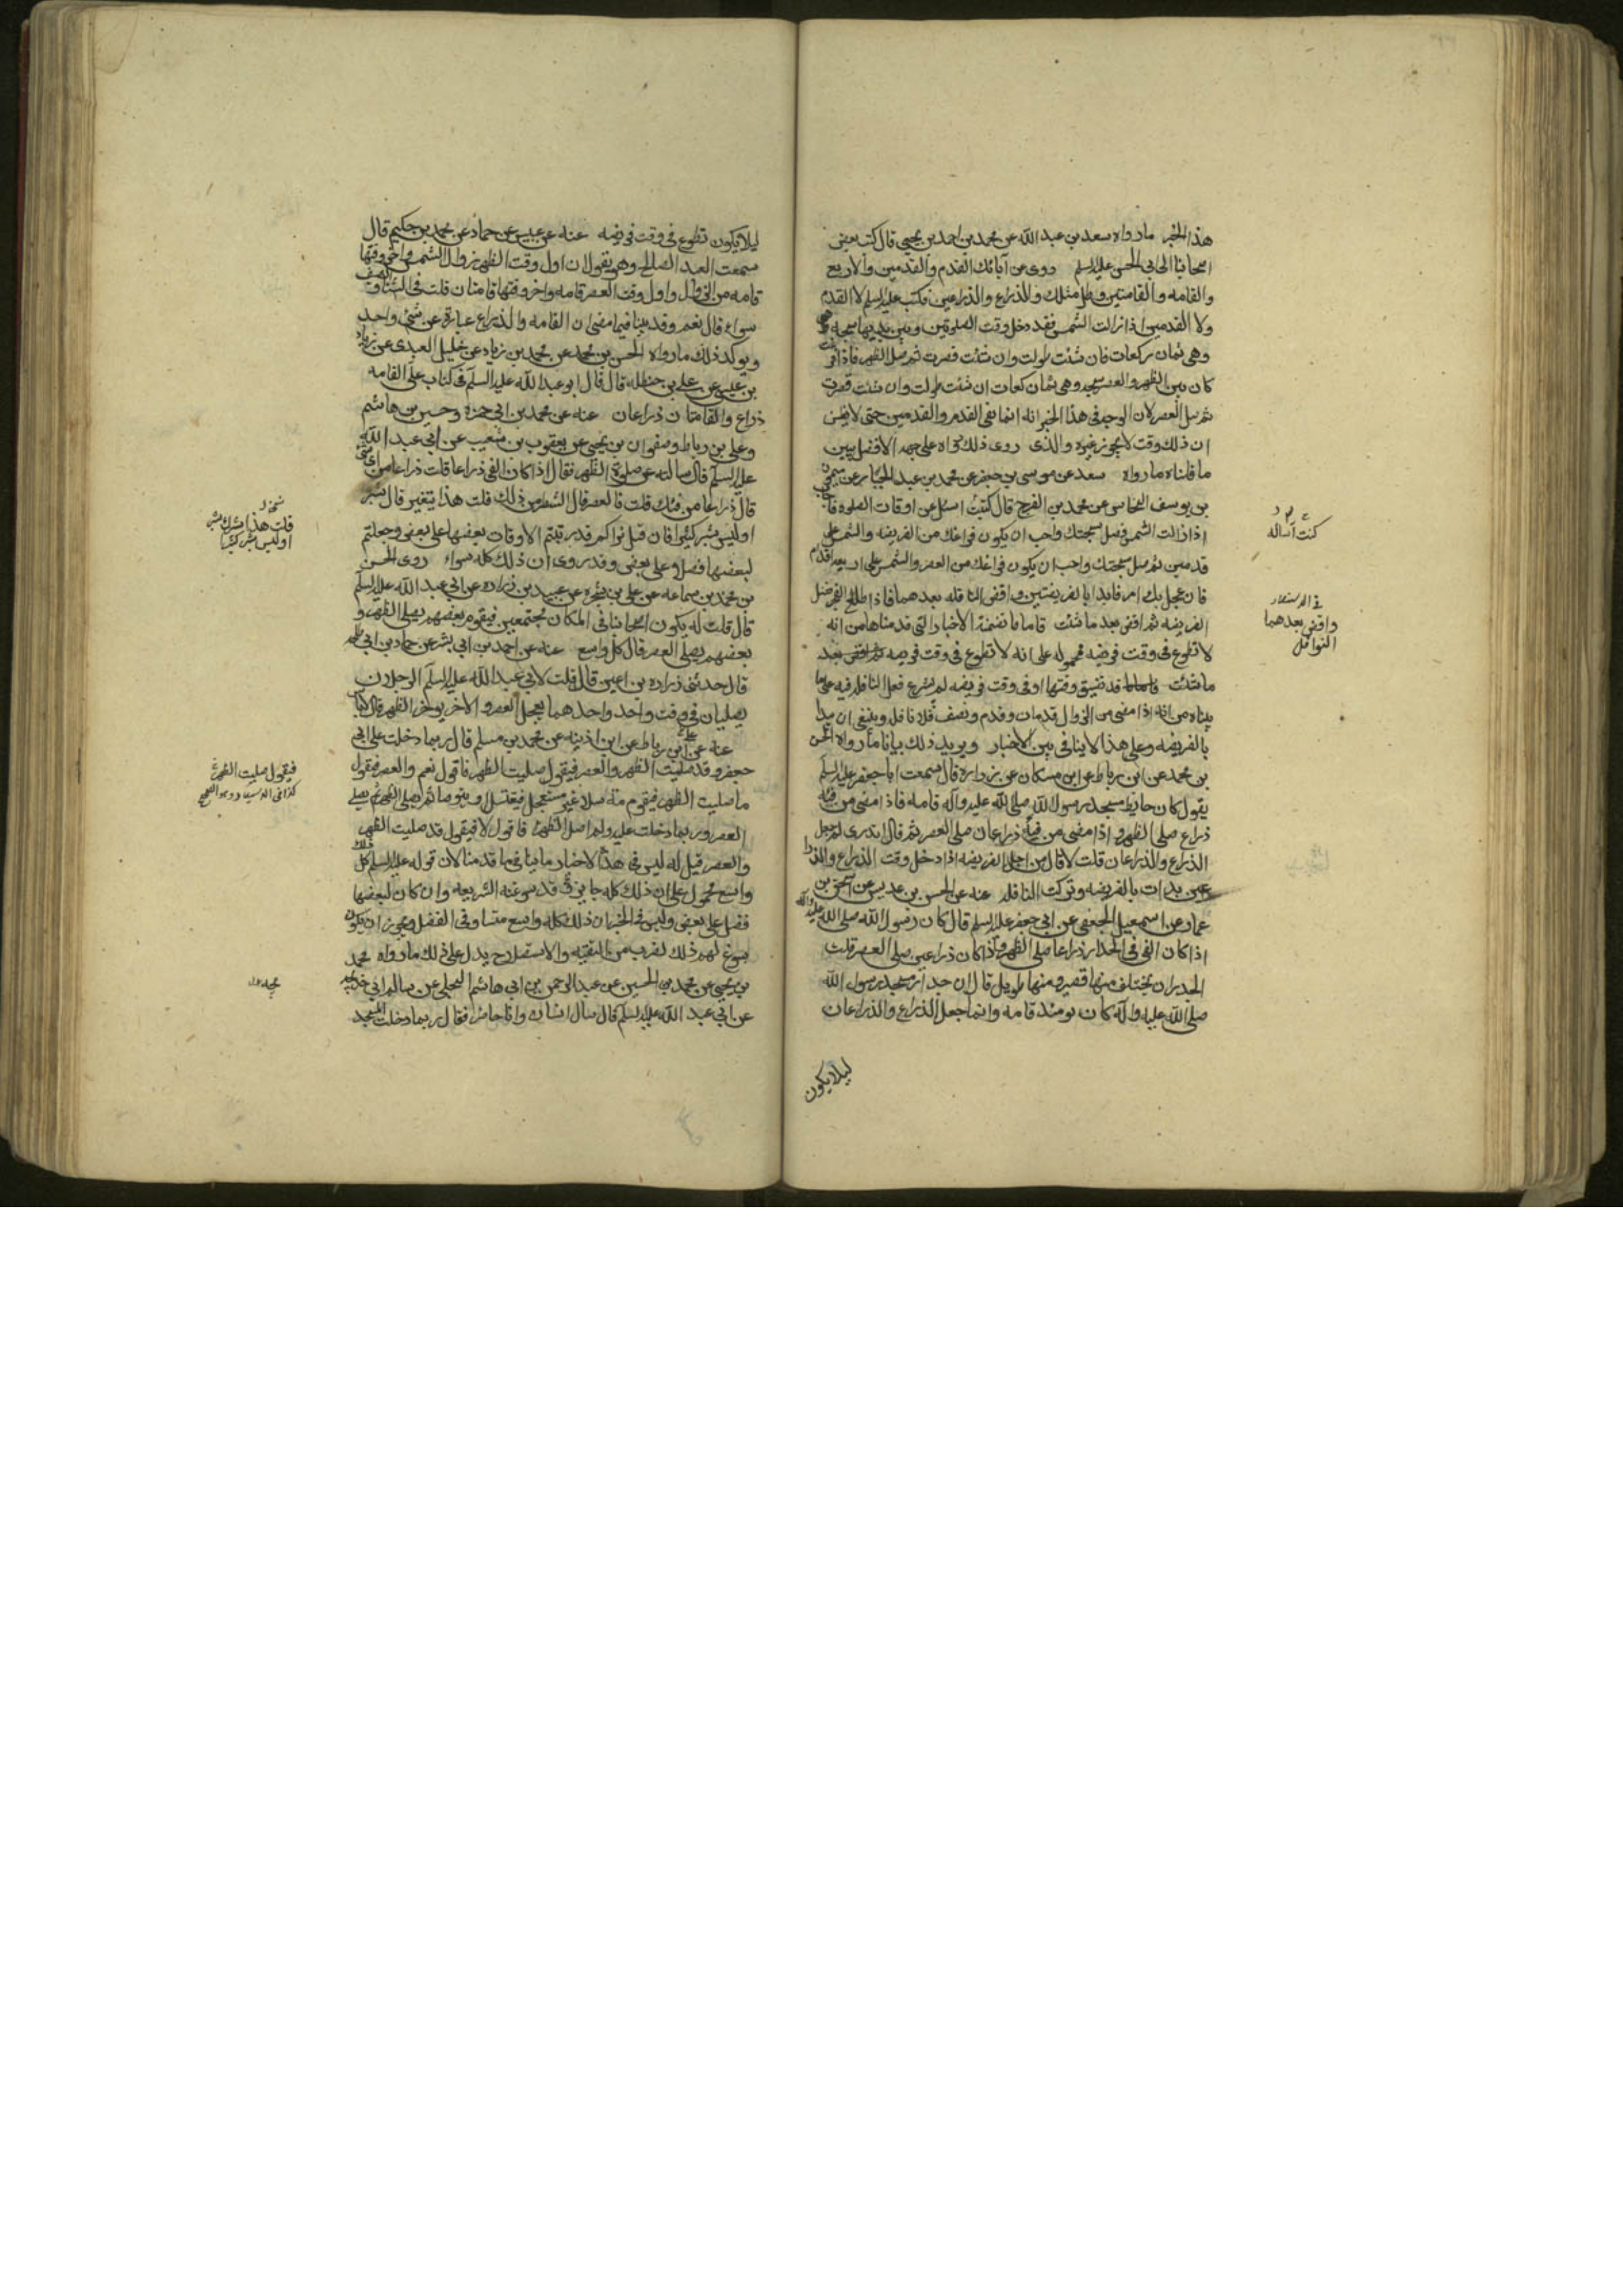 هذا الخبر ما رواه سعد بن عبد الله عن محمد بن احمد بن يحيى قال كتب بعض
اصحابنا الى ابى الحسن عليه السلم روى عن آبائك القدم والقدمين والاربع
والقامه والقامتين وظل مثلك والذراع والذراعين فكتب عليه السلم لا القدم
ولا القدمين اذا زالت الشمس فقد دخل وقت الصلوتين وبين يديها سبحه
وهى ثمان ركعات فان شئت طولت وان شئت قصرت ثم صل الظهر فاذا فرغت
كان بين الظهر والعصر سبحه وهى ثمان ركعات ان شئت طولت وان شئت قصرت
ثم صل العصر لان الوجه فى هذا الخبر انه انما نفى القدم والقدمين حتى لا يظن
ان ذلك وقت لا يجوز غيره والذى روى ذلك رواه على جهه الافضل يبين
ما قلناه ما رواه سعد عن موسى بن جعفر عن محمد بن عبد الجبار عن ميمون
بن يوسف النخاس عن محمد بن الفرج قال كتبت اسئل عن اوقات الصلوه فاجاب
اذا زالت الشمس فصل سبحتك واحب ان يكون فراغك من الفريضه والشمس على
قدمين ثم صل سبحتك واحب ان يكون فراغك من العصر والشمس على اربعه اقدام
فان عجل بك امر فابدا بالفريضتين واقض النافله بعدهما فاذا طلع الفجر فصل
الفريضه ثم اقض بعد ما شئت فاما ما تضمنته الاخبار التى قدمناها من انه
لا تطوع فى وقت فريضه محموله على انه لا تطوع فى وقت فريضه
ما شئت قد تضيق وقتها او فى وقت فريضه لم يشرع فعل النافله فيه على ما
بيناه من انه اذا مضى من الزوال قدمان وقدم ونصف فلا نافله وينبغى ان يبدا
بالفريضه وعلى هذا لا ينافى بين الاخبار ويويد ذلك بيانا ما رواه الحسن
بن محمد عن ابن رباط عن ابن مسكان عن زراره قال سمعت ابا جعفر عليه السلم
يقول كان حايط مسجد رسول الله صلى الله عليه وآله قامه فاذا مضى من فيئه
ذراع صلى الظهر واذا مضى من فيئه ذراعان صلى العصر ثم قال اتدرى لم جعل
الذراع والذراعان قلت لا قال من اجل الفريضه اذا دخل وقت الذراع والذرا
عين بدات بالفريضه وتركت النافله عنه عن الحسن بن عديس عن اسحق بن
عمار عن اسمعيل الجعفى عن ابى جعفر عليه السلم قال كان رسول الله صلى الله عليه وآله
اذا كان الفى فى الجدار ذراعا صلى الظهر واذا كان ذراعين صلى العصر قلت
الجدران تختلف منها قصير ومنها طويل قال ان جدار مسجد رسول الله
صلى الله عليه وآله كان يومئذ قامه وانما جعل الذراع والذراعان
ليلا يكون
كنت اساله
واقض بعدهما
النوافل
ليلا يكون تطوع فى وقت فريضه عنه عن عبيس عن حماد عن محمد بن حكيم قال
سمعت العبد الصالح وهو يقول ان اول وقت الظهر زوال الشمس واخر وقتها
قامه من الزوال واول وقت العصر قامه واخر وقتها قامتان قلت فى الشتاء والصيف
سواء قال نعم وقد بينا فيما مضى ان القامه والذراع عبارة عن شئ واحد
ويوكد ذلك ما رواه الحسن بن محمد عن محمد بن زياد عن خليل العبدى عن زياد
بن عيسى عن على بن حنظله قال قال ابو عبد الله عليه السلم فى كتاب على القامه
ذراع والقامتان ذراعان عنه عن محمد بن ابى حمزه وحسين بن هاشم
وعلى بن رباط وصفوان بن يحيى عن يعقوب بن شعيب عن ابى عبد الله
عليه السلم قال سالته عن صلوة الظهر فقال اذا كان الفى ذراعا قلت ذراعا من اى شئ
قال ذراعا من فيئك قلت فالعصر قال الشطر من ذلك قلت هذا يتغير قال شبر
اوليس شبر كثيرا فان قيل نراكم قد رتبتم الاوقات بعضها على بعض وجعلتم
لبعضها فضلا على بعض وقد روى ان ذلك كله سواء روى الحسن
بن محمد بن سماعه عن على بن شجره عن عبيد بن زراره عن ابى عبد الله عليه السلم
قال قلت له يكون اصحابنا فى المكان مجتمعين فيقوم بعضهم يصلى الظهر و
بعضهم يصلى العصر قال كل واسع عنه عن احمد بن ابى بشر عن حماد بن ابى طلحه
قال حدثنى زراره بن اعين قال قلت لابى عبد الله عليه السلم الرجلان
يصليان فى وقت واحد واحدهما يعجل العصر والاخر يوخر الظهر قال لا باس
عنه عن ابن رباط عن ابن اذينه عن محمد بن مسلم قال ربما دخلت على ابى
جعفر وقد صليت الظهر والعصر فيقول صليت الظهر فاقول نعم والعصر فيقول
ما صليت الظهر فيقوم مترسلا غير مستعجل فيغتسل او يتوضا ثم يصلى الظهر ثم يصلى
العصر وربما دخلت عليه ولم اصل الظهر فاقول لا فيقول قد صليت الظهر
والعصر قيل له ليس فى هذه الاخبار ما ينافى ما قدمنا لان قوله عليه السلم كل ذلك
واسع محمول على ان ذلك كله جايز قد سوغته الشريعه وان كان لبعضها
فضل على بعض وليس فى الخبر ان ذلك كله واسع متساو فى الفضل ويجوز ان يكون
سوغ لهم ذلك لضرب من التقيه والاستصلاح يدل على ذلك ما رواه محمد
بن يحيى عن محمد بن الحسين عن عبد الرحمن بن ابى هاشم البجلى عن سالم ابى خديجه
عن ابى عبد الله عليه السلم قال سال انسان وانا حاضر فقال ربما دخلت المسجد
اوليس شبر كثيرا
فيقول صليت الظهر